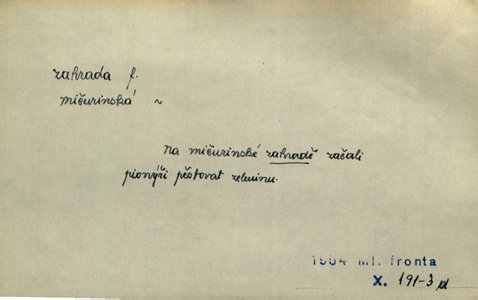 zahrada f.
mičurinská ~
Na mičurinské zahradě začali
pionýři pěstovat zeleninu.
1954 Ml. fronta
X. 191-3